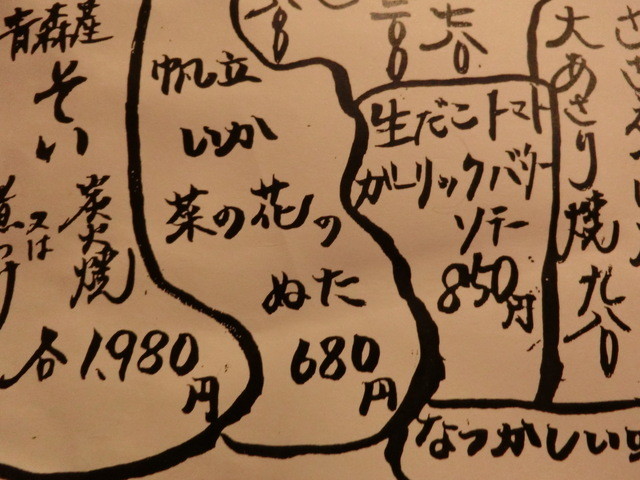 青森産
そい
炭火焼
又は
煮つけ
各1,980
円
帆立
いか
菜の花の
ぬた
680
円
生だこトマト
ガーリックバター
ソテー
850円
大あさり焼
九八〇
七八〇
なつかしい